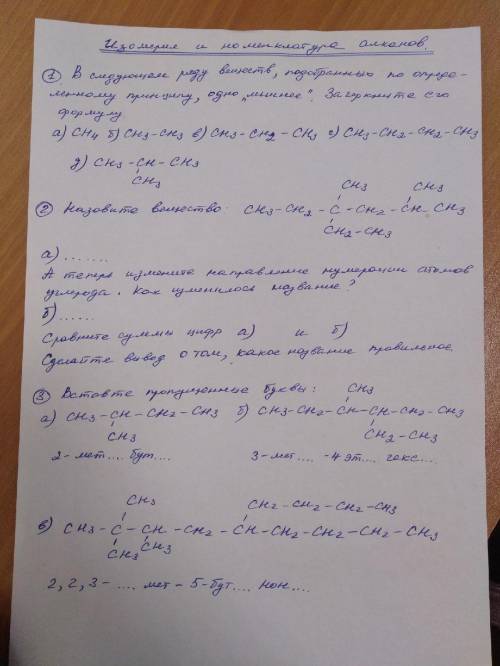 Изомерия и номенклатура алканов.
① В следующем ряду веществ, подобранных по опреде-
ленному принципу, одно „лишнее“. Зачеркните его
формулу
а) CH4 б) CH3-CH3 в) CH3-CH2-CH3 г) CH3-CH2-CH2-CH3
д) CH3-CH-CH3
CH3
② Назовите вещество:
CH3 CH3
CH3-CH2-C-CH2-CH-CH3
CH2-CH3
а) .......
А теперь измените направление нумерации атомов
углерода. Как изменилось название?
б) ......
Сравните суммы цифр а) и б)
Сделайте вывод о том, какое название правильное.
③ Вставте пропущенные буквы:
CH3
а) CH3-CH-CH2-CH3 б) CH3-CH2-CH-CH-CH2-CH3
CH3 CH2-CH3
2-мет.... бут.... 3-мет....-4 эт.... гекс....
CH3 CH2-CH2-CH2-CH3
в) CH3-C-CH-CH2-CH-CH2-CH2-CH2-CH3
CH3 CH3
2, 2, 3-.... мет-5-бут.... нон....